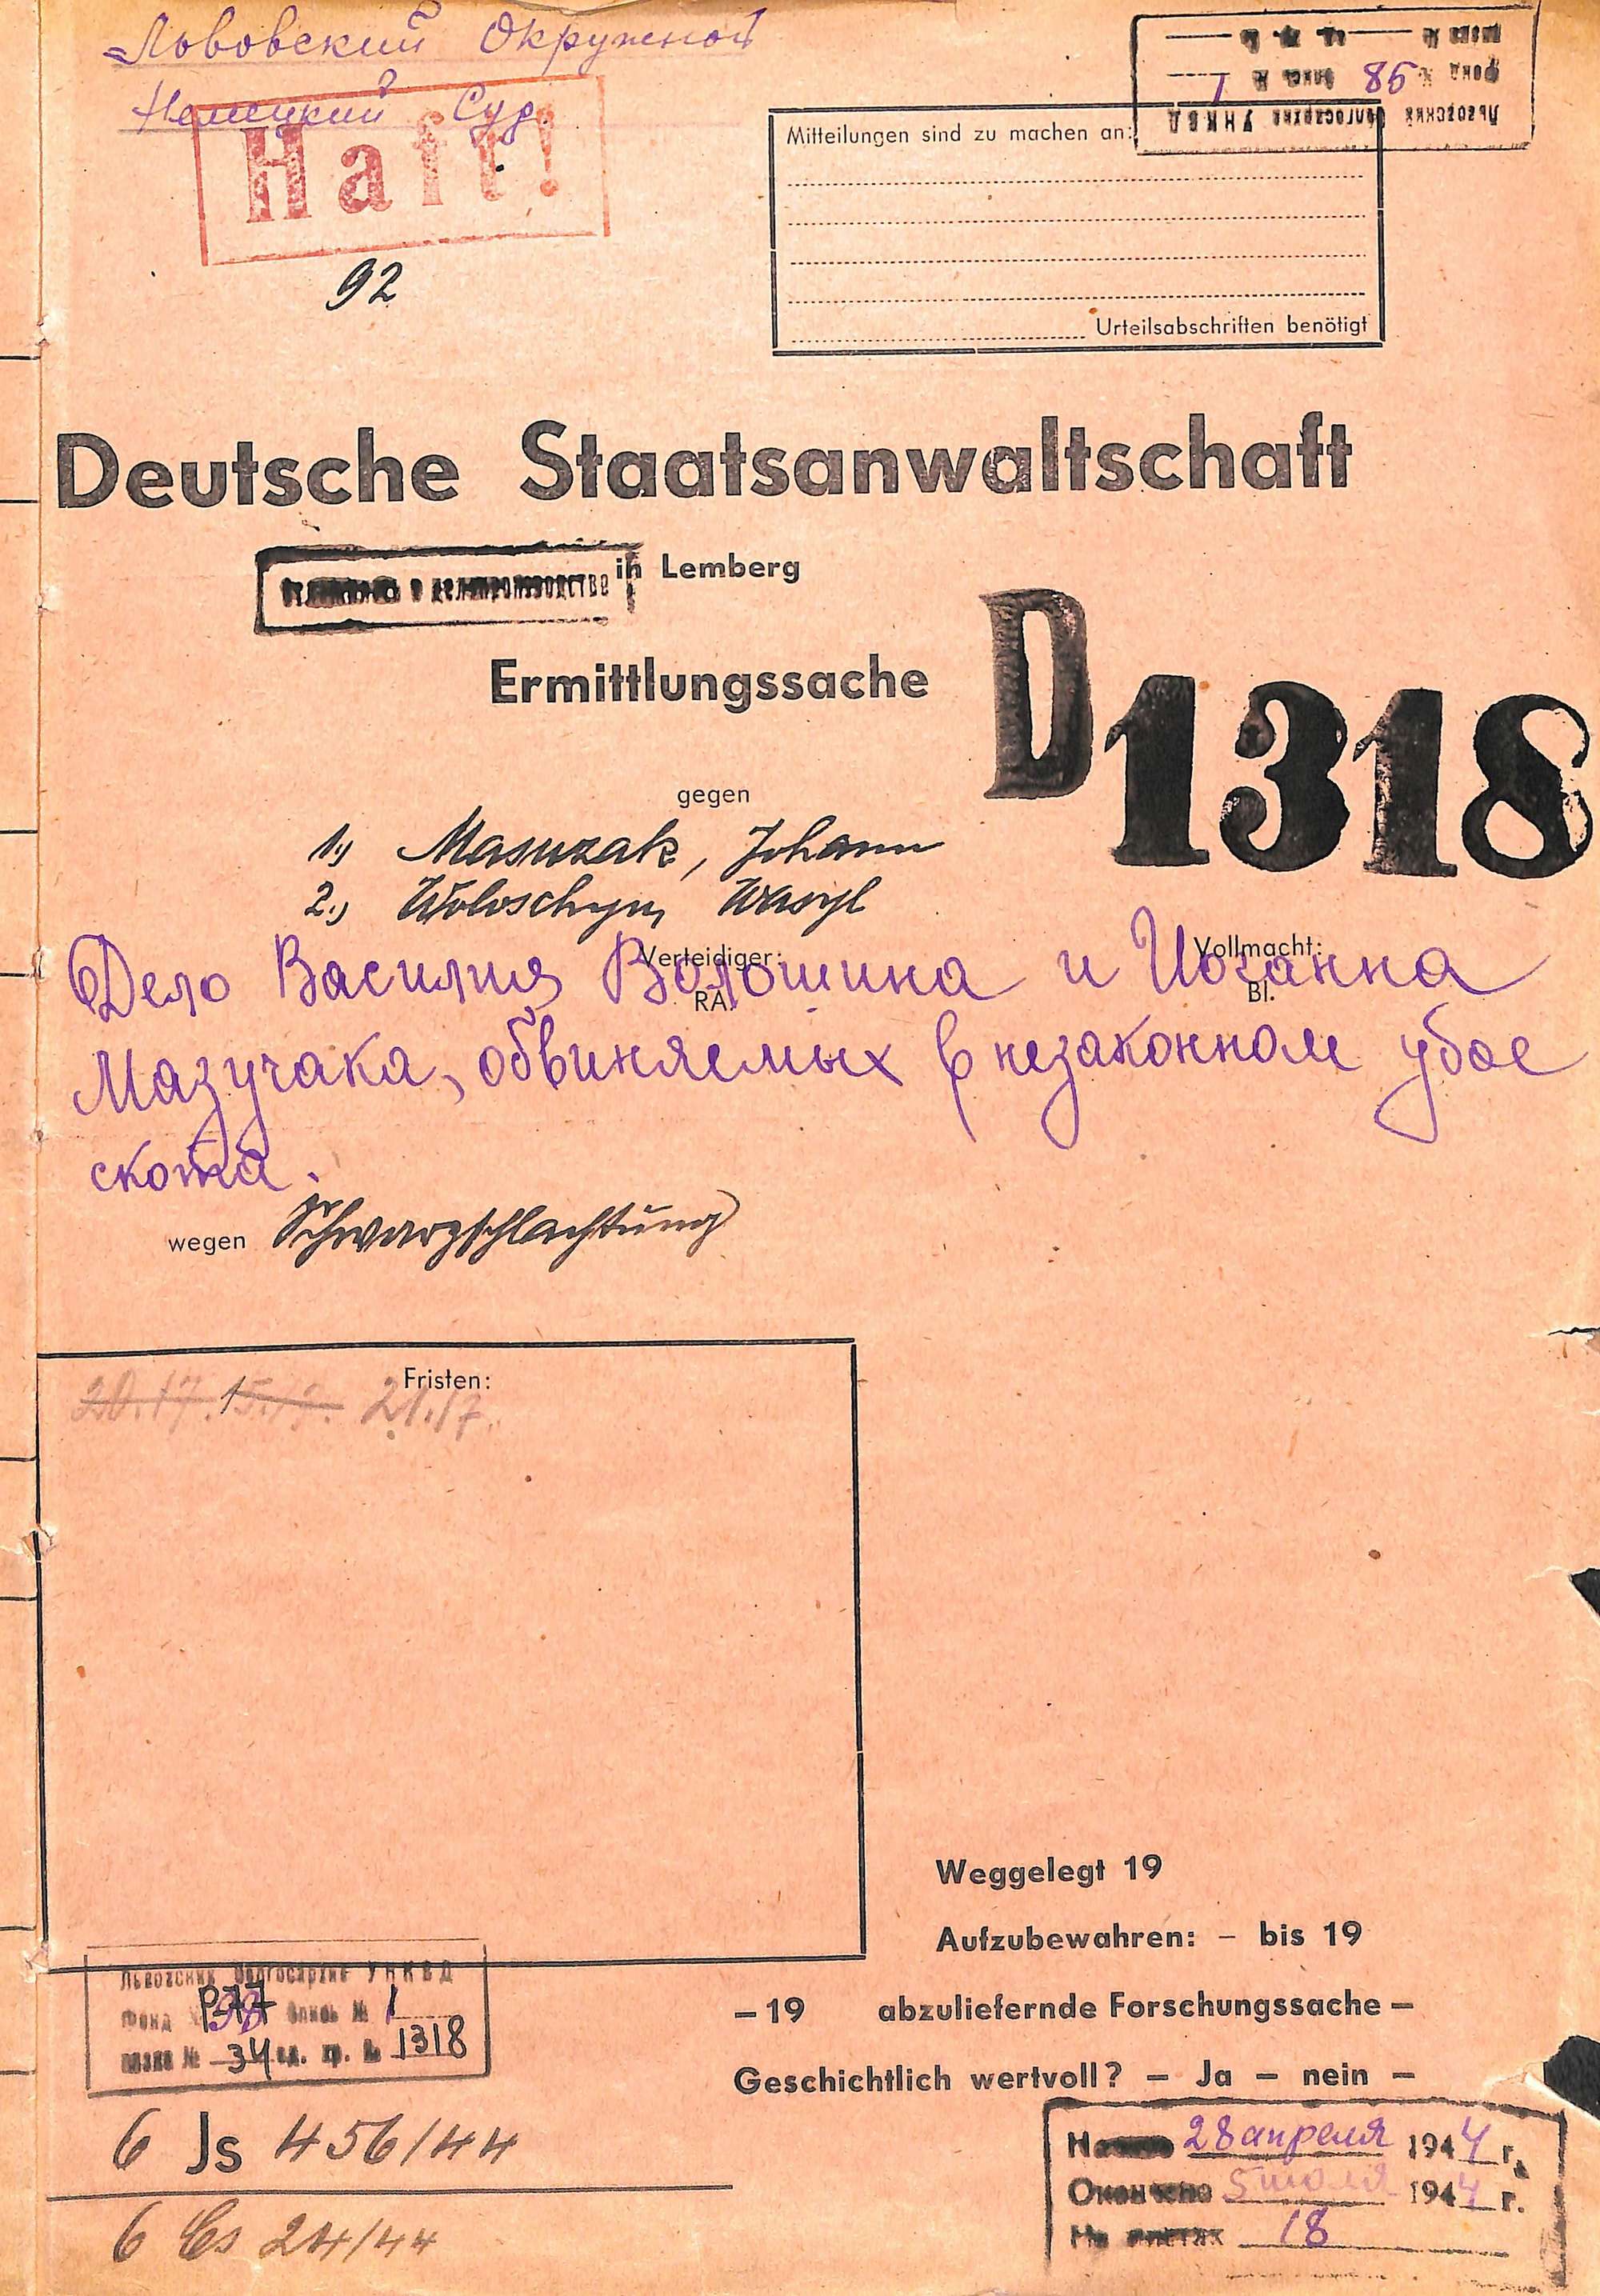 Львовский Окружной
Немецкий Суд.
Haft!
92
Львовский Облгосархив УНКВД
Фонд № 85 Опись № 1
Mitteilungen sind zu machen an:
Urteilsabschriften benötigt
Deutsche Staatsanwaltschaft
in Lemberg
Ermittlungssache
D1318
gegen
1.) Masuzak, Johann
2.) Woloschyn, Wasyl
Verteidiger: Vollmacht:
RA. Bl.
Дело Василия Волошина и Иоганна
Мазучака, обвиняемых в незаконном убое
скота.
wegen Schwarzschlachtung
Fristen:
20.17. 15.7. 21.17.
Weggelegt 19
Aufzubewahren: – bis 19
– 19 abzuliefernde Forschungssache –
Geschichtlich wertvoll? – Ja – nein –
Львовский Облгосархив УНКВД
Фонд Р-77 Опись № 1
№ 34 ед. хр. № 1318
6 Js 456/44
6 Cs 24/44
28 апреля 1944 г.
Окончено 5 июля 1944 г.
На листах 18